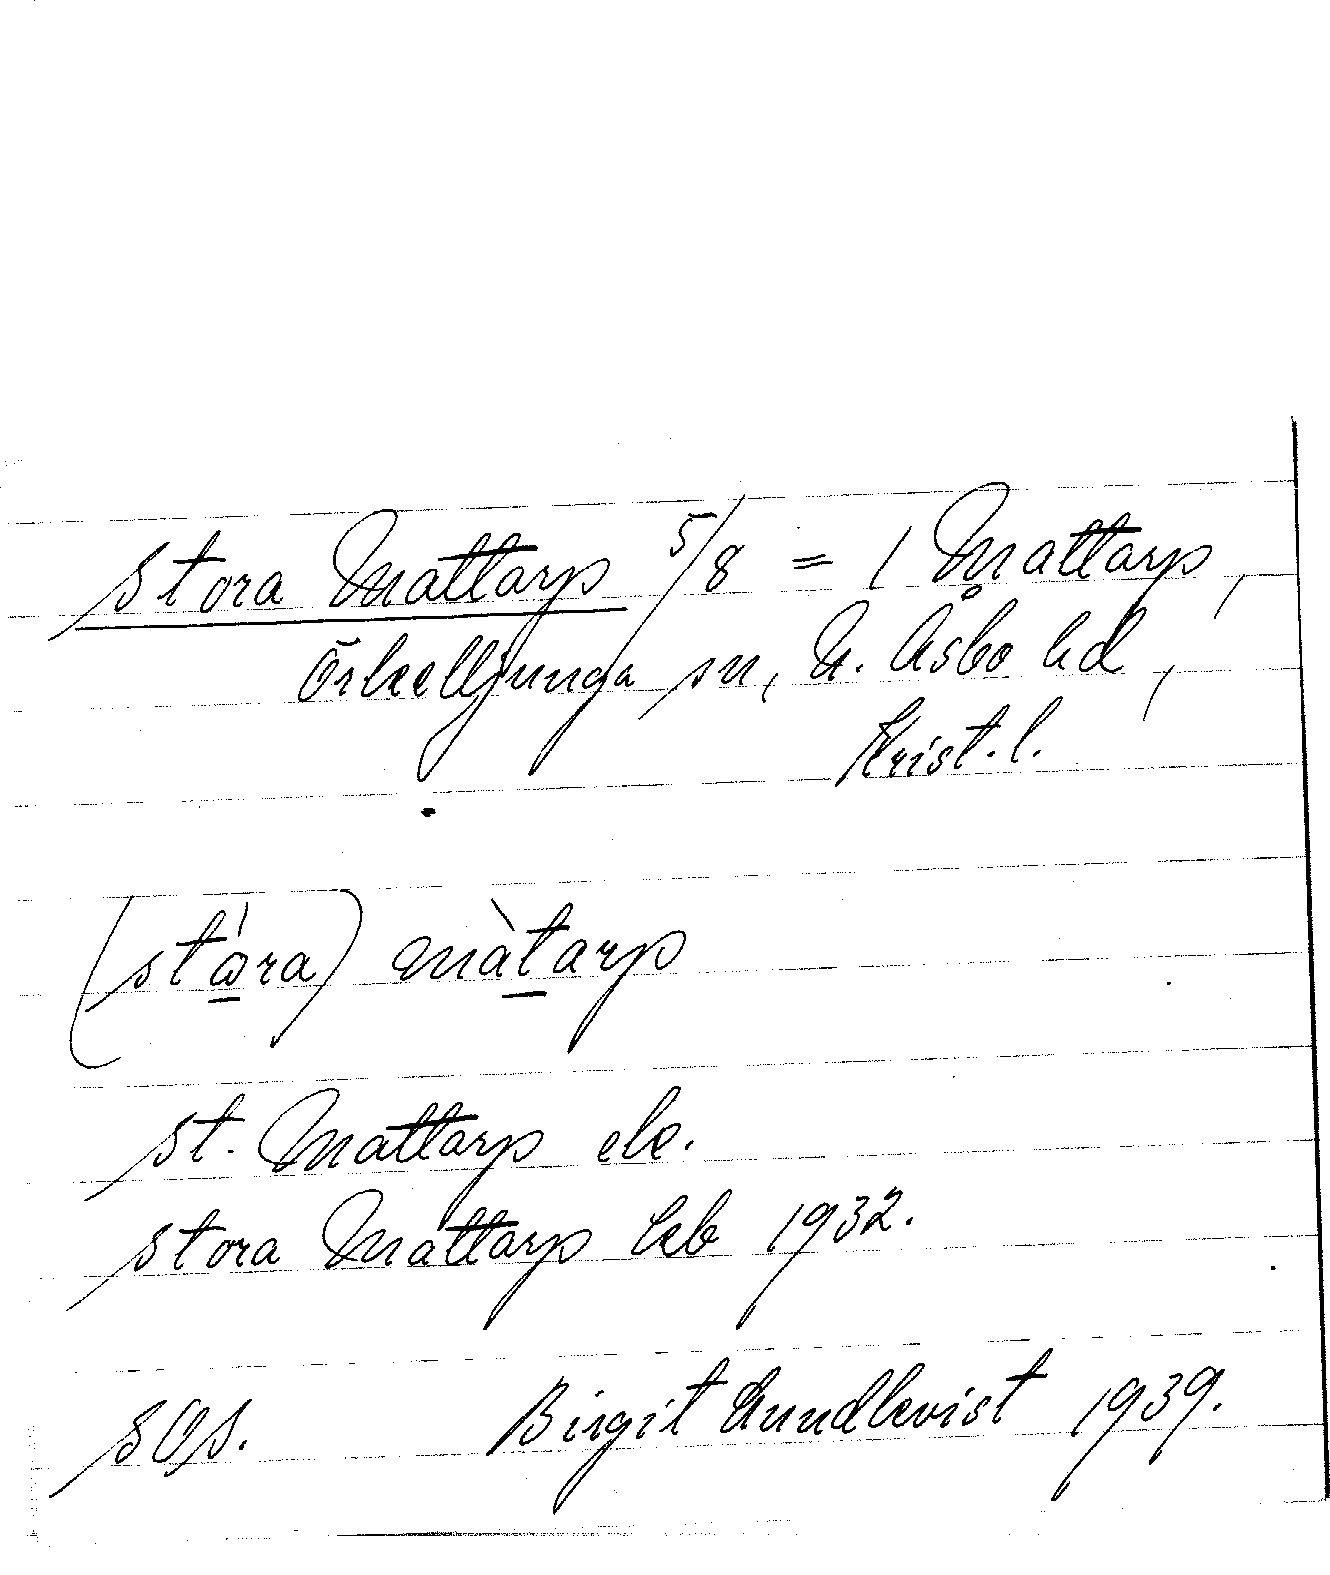 Stora Mattarp 5/8 = 1 Mattarp,
Örkelljunga sn, N. Åsbo hd,
Krist. l.
(stɷ̀ra) màtarp
St. Mattarp ek.
Stora Mattarp kb 1932.
SOS. Birgit Lundkvist 1939.